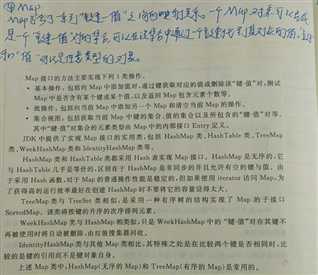 ④Map
Map也与于系列"键—值"之间的映射关系。一个Map对象可以看成
是一个键值对的集合,可以在这集合中通过个键对找其对应的值,这
和"值"可以是任意类型的对象。
Map 接口的方法主要实现下列 3 类操作。
• 基本操作,包括向 Map 中添加值对,通过键获取对应的值或删除该"键-值"对,测试
Map 中是否含有某个键或某个值,以及返回 Map 包含元素个数等。
• 批操作,包括向当前 Map 中添加另一个 Map 和清空当前 Map 的操作。
• 集合视图,包括获取当前 Map 中键的集合、值的集合以及所包含的"键-值"对等。
其中"键-值"对集合的元素类型由 Map 中的内部接口 Entry 定义。
JDK 中提供了实现 Map 接口的实用类,包括 HashMap 类、HashTable 类、TreeMap
类、WeekHashMap 类和 IdentityHashMap 类等。
HashMap 类和 HashTable 类都采用 Hash 表实现 Map 接口。HashMap 是无序的,它
与 HashTable 几乎是等价的,区别在于 HashMap 是非同步的并且允许有空的键与值。由
于采用 Hash 函数,对于 Map 的普通操作性能是稳定的,但如果使用 iterator 访问 Map,为
了获得高的运行效率最好在创建 HashMap 时不要将它的容量设得太大。
TreeMap 类与 TreeSet 类相似,是采用一种有序树的结构实现了 Map 的子接口
SortedMap。该类将按键的升序的次序排列元素。
WeekHashMap 类与 HashMap 类相似,只是 WeekHashMap 中的"键-值"对在其键不
再被使用时将自动被删除,由垃圾搜集器回收。
IdentityHashMap 类与其他 Map 类相比,其特殊之处是在比较两个键是否相同时,比
较的是键的引用而不是键对象自身。
上述 Map 类中,HashMap(无序的 Map)和 TreeMap(有序的 Map)是常用的。